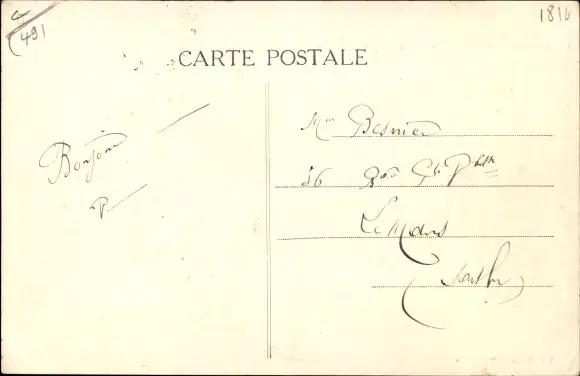 491
1816
CARTE POSTALE
Bonjour
P
Mme Besnier
56
Le Mans
(Sarthe)